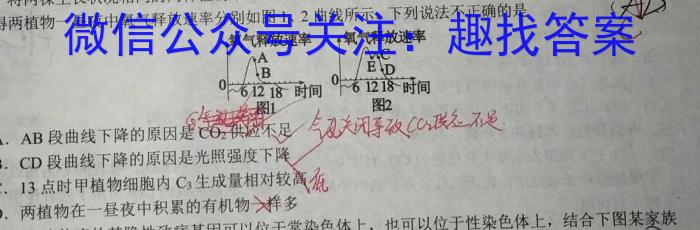 得两植物一昼夜中氧气释放速率分别如图1、2曲线所示、下列说法不正确的是
微信公众号关注:趣找答案
氧气释放速率
A
B
0
6 12 18 时间
图1
氧气释放速率
C
E
D
0
6 12 18 时间
图2
A. AB段曲线下降的原因是CO₂供应不足
气孔关闭导致CO₂供应不足
B. CD段曲线下降的原因是光照强度下降
C. 13点时甲植物细胞内C₃生成量相对较高
低
D. 两植物在一昼夜中积累的有机物一样多
因可以位于常染色体上,也可以位于性染色体上,结合下图某家族